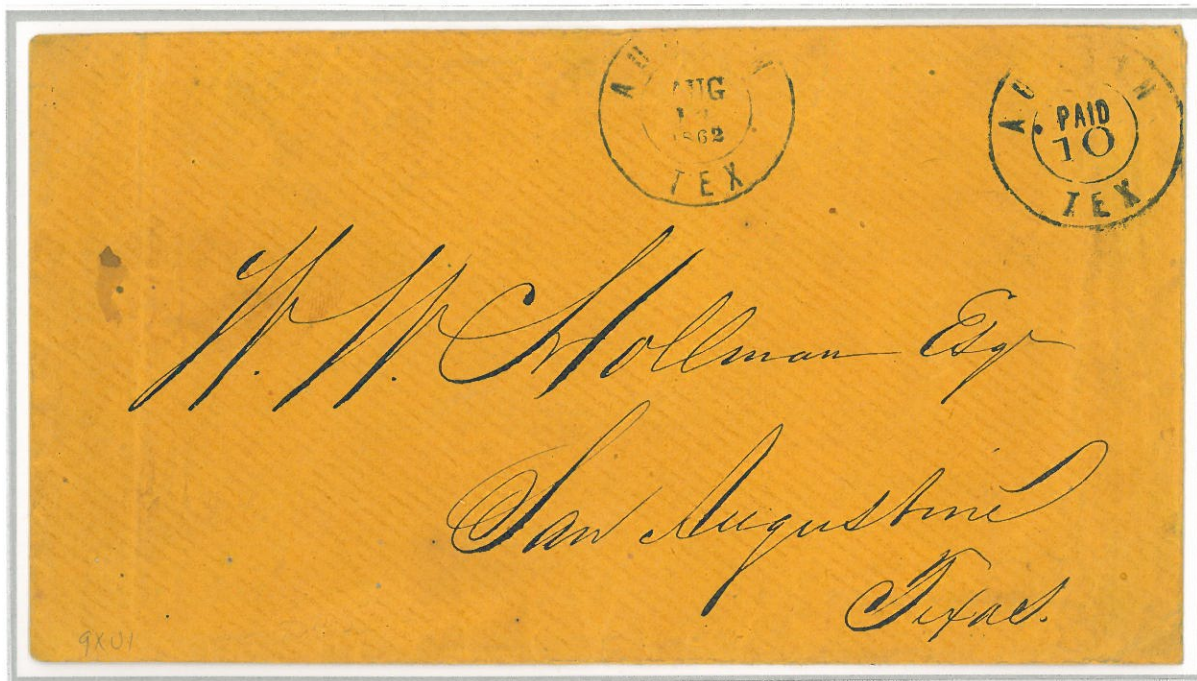 AUG
1862
TEX
AUSTIN
PAID
10
TEX
W. W. Hollman Esqr
San Augustine
Texas.
9XU1